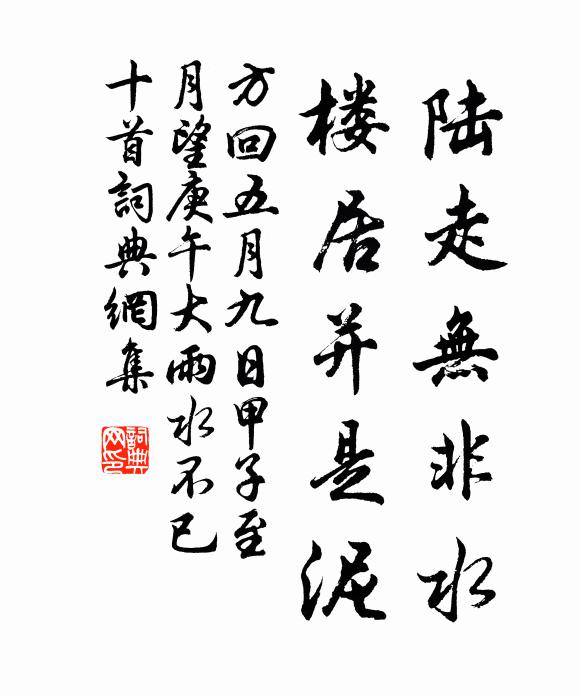 陆走無非水
楼居并是泥
方回五月九日甲子至
月望庚午大雨水不已
十首詞典網集
詞典
网印